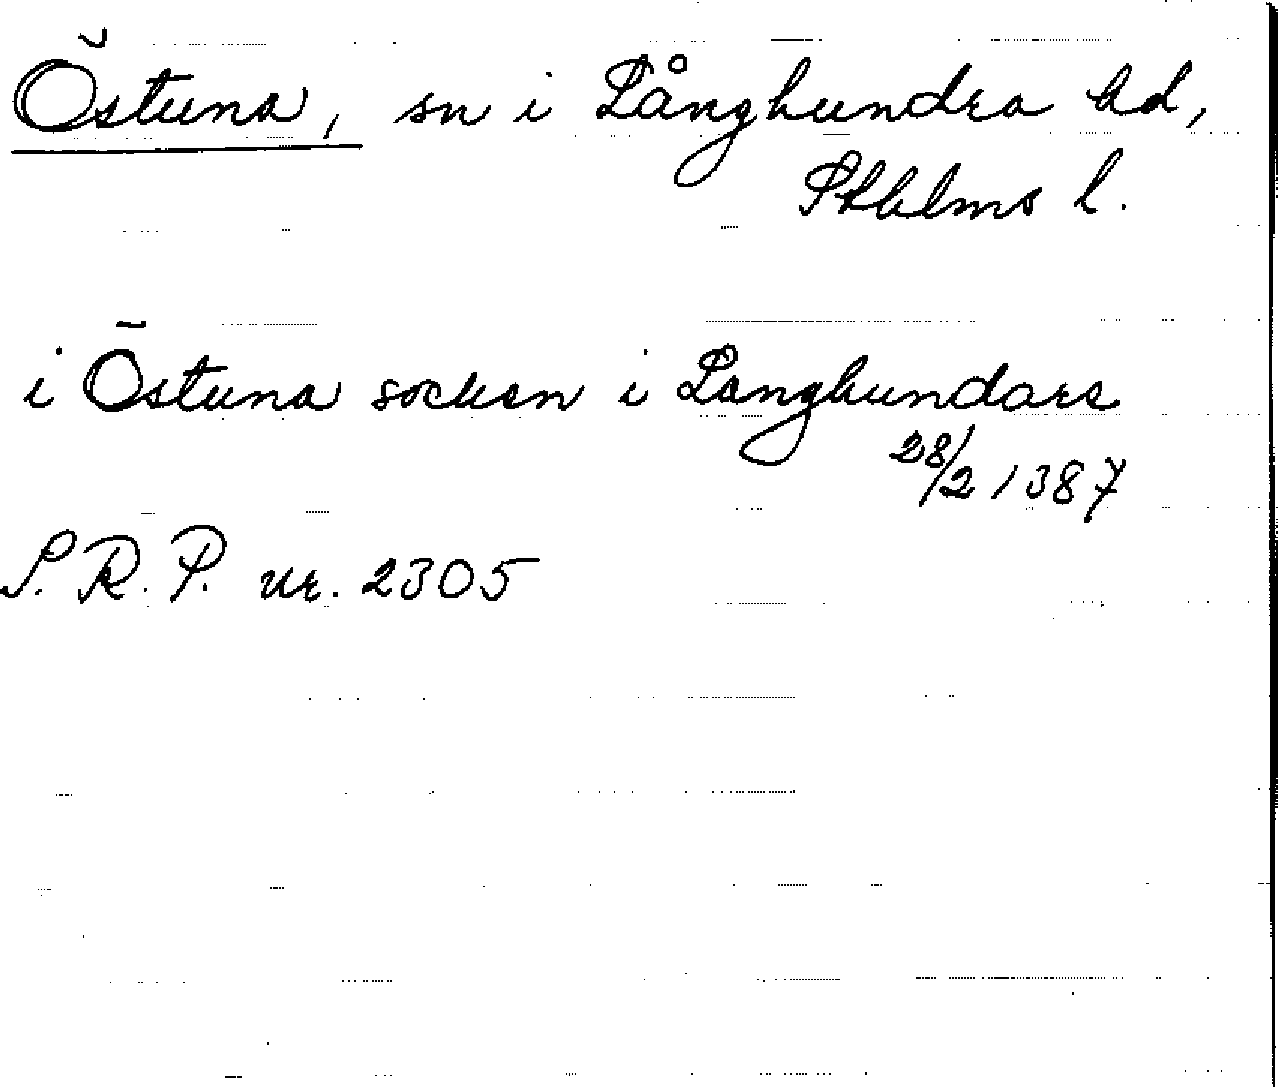 Östuna, sn i Långhundra hd,
Sthlms l.
i Östuna socken i Langhundare
28/2 1387
S.R.P. nr. 2305